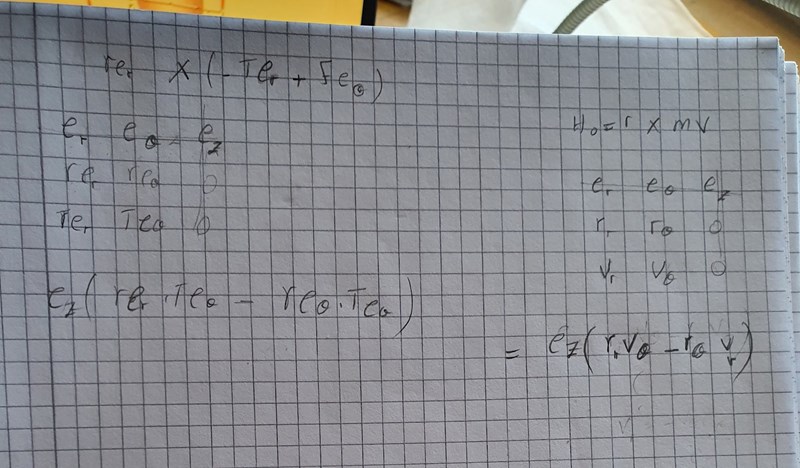 re_r × (-Te_r + Fe_θ)
e_r e_θ e_z
re_r re_θ 0
Te_r Te_θ 0
e_z(re_r · Te_θ - re_θ · Te_θ)
H_0 = r × mv
e_r e_θ e_z
r_r r_θ 0
v_r v_θ 0
= e_z(r_r v_θ - r_θ v_r)